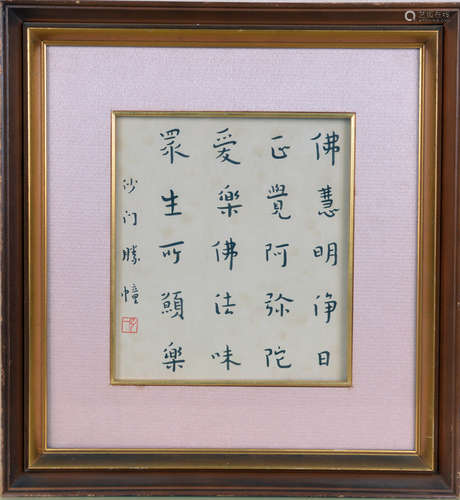 佛慧明净日
正覺阿弥陀
愛樂佛法味
眾生所願樂
沙门勝幢
艺狐在线